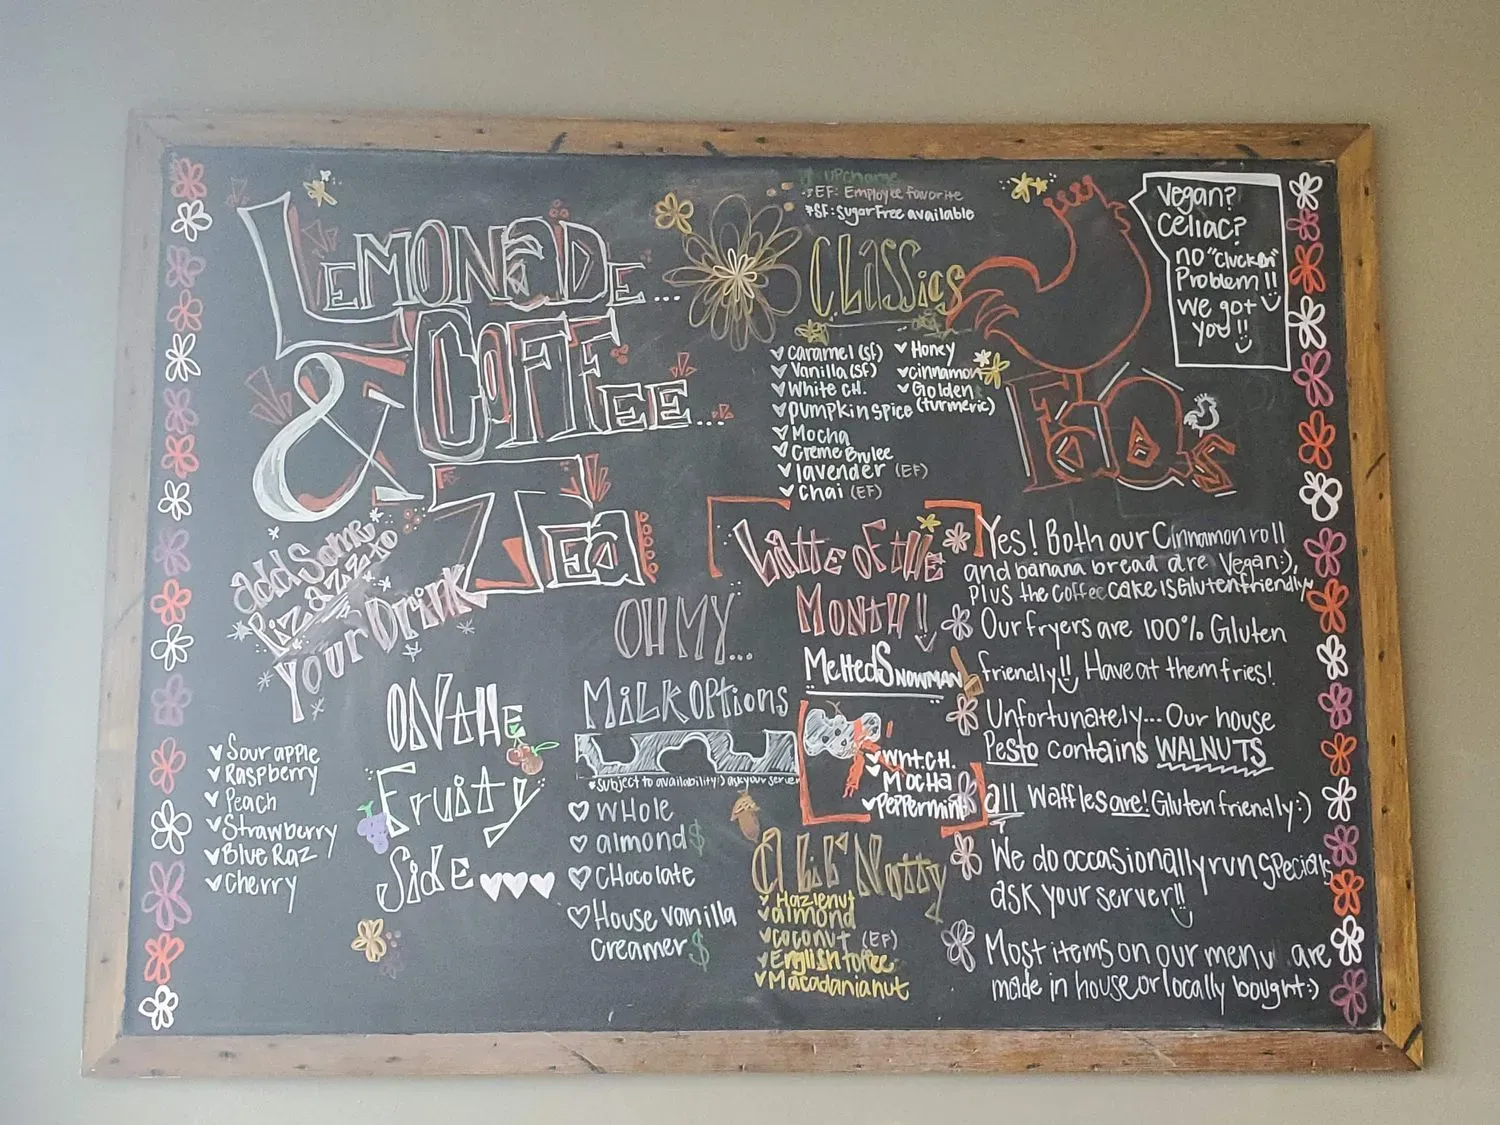 LEMONADE...
& COFFEE...
TEA
add Some
Pizzazz to
YOUR DRINK
ON THE
Fruity
Side
Sour apple
Raspberry
Peach
Strawberry
Blue Raz
Cherry
OH MY...
MILK OPtions
*subject to availability:) ask your server
WHole
almond $
CHocolate
House vanilla
creamer $
$: UPcharge
EF: Employee favorite
*SF: Sugar Free available
CLASSics
Caramel (sf)
Vanilla (SF)
White CH.
pumpkin spice
Mocha
Creme Brulee
lavender (EF)
Chai (EF)
Honey
cinnamon
Golden
(turmeric)
Latte OF tHE
MONtH!!
Melted SNOWMAN
WHt. CH.
MOCHa
Peppermint
a Lil' Nutty
Hazlenut
almond
coconut (EF)
English toffee
Macadamia nut
Vegan?
Celiac?
no "Cluckin"
Problem!!
We got
you!!
FAQs
Yes! Both our Cinnamon roll
and banana bread are Vegan:),
Plus the coffee cake is Gluten friendly
Our fryers are 100% Gluten
friendly!! Have at them fries!
Unfortunately... Our house
Pesto contains WALNUTS
all Waffles are! Gluten friendly:)
We do occasionally run specials
ask your server!!
Most items on our menu are
made in house or locally bought:)